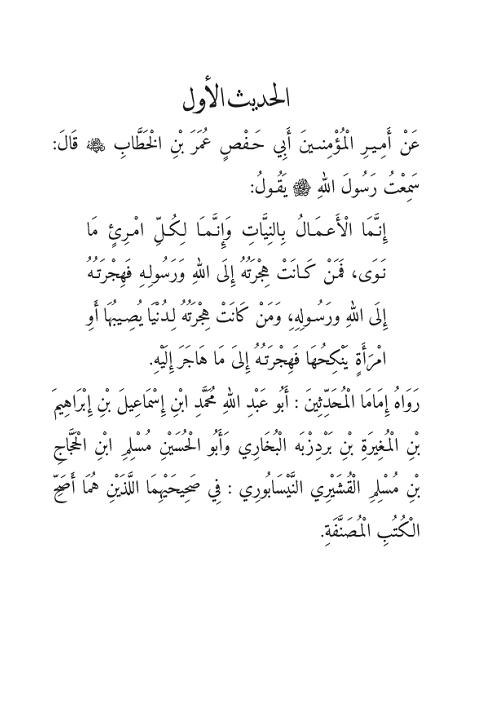 الحديث الأول
عَنْ أَمِيرِ الْمُؤْمِنِينَ أَبِي حَفْصٍ عُمَرَ بْنِ الْخَطَّابِ ﵁ قَالَ:
سَمِعْتُ رَسُولَ اللهِ ﷺ يَقُولُ:
إِنَّمَا الْأَعْمَالُ بِالنِيَّاتِ وَإِنَّمَا لِكُلِّ امْرِئٍ مَا
نَوَى، فَمَنْ كَانَتْ هِجْرَتُهُ إِلَى اللهِ وَرَسُولِهِ فَهِجْرَتُهُ
إِلَى اللهِ ورَسُولِهِ، وَمَنْ كَانَتْ هِجْرَتُهُ لِدُنْيَا يُصِيبُهَا أَوِ
امْرَأَةٍ يَنْكِحُهَا فَهِجْرَتُهُ إِلىَ مَا هَاجَرَ إِلَيْهِ.
رَوَاهُ إِمَامَا الْمُحَدِّثِينَ : أَبُو عَبْدِ اللهِ مُحَمَّدِ ابْنِ إِسْمَاعِيلَ بْنِ إِبْرَاهِيمَ
بْنِ الْمُغِيرَةِ بْنِ بَرْدِزْبَه الْبُخَارِي وَأَبُو الْحُسَيْنِ مُسْلِمِ ابْنِ الْحَجَّاجِ
بْنِ مُسْلِمِ الْقُشَيْرِي النَّيْسَابُورِي : فِي صَحِيحَيْهِمَا اللَّذَيْنِ هُمَا أَصَحِّ
الْكُتُبِ الْمُصَنَّفَةِ.